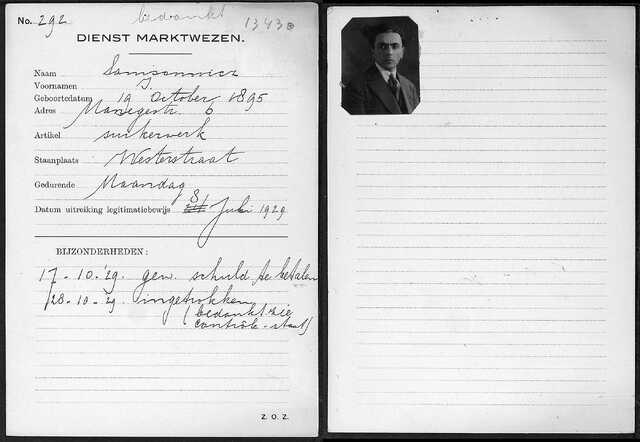 No. 292 bedankt 13430
DIENST MARKTWEZEN.
Naam Samsonowicz
Voornamen J.
Geboortedatum 19 October 1895
Adres Manegestr. 6
Artikel suikerwerk
Staanplaats Westerstraat
Gedurende Maandag
Datum uitreiking legitimatiebewijs 8 Juli 1929
BIJZONDERHEDEN :
17-10-'29. gew. schuld te betalen
28-10-29 ingetrokken
(bedankt zie
contrôle-staat)
Z. O. Z.